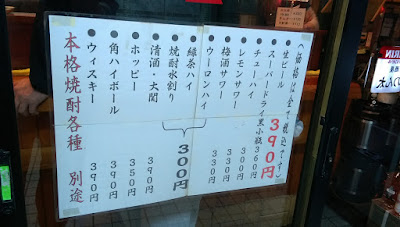 （価格は全て税込です）
●生ビール ３９０円
●スーパードライ黒小瓶 ３６０円
●チューハイ
●レモンサワー ３３０円
●梅酒サワー ３３０円
●ウーロンハイ
●緑茶ハイ
●焼酎水割り
３００円
●清酒・大関 ３９０円
●ホッピー ３５０円
●角ハイボール ３９０円
●ウィスキー ３９０円
本格焼酎各種 別途